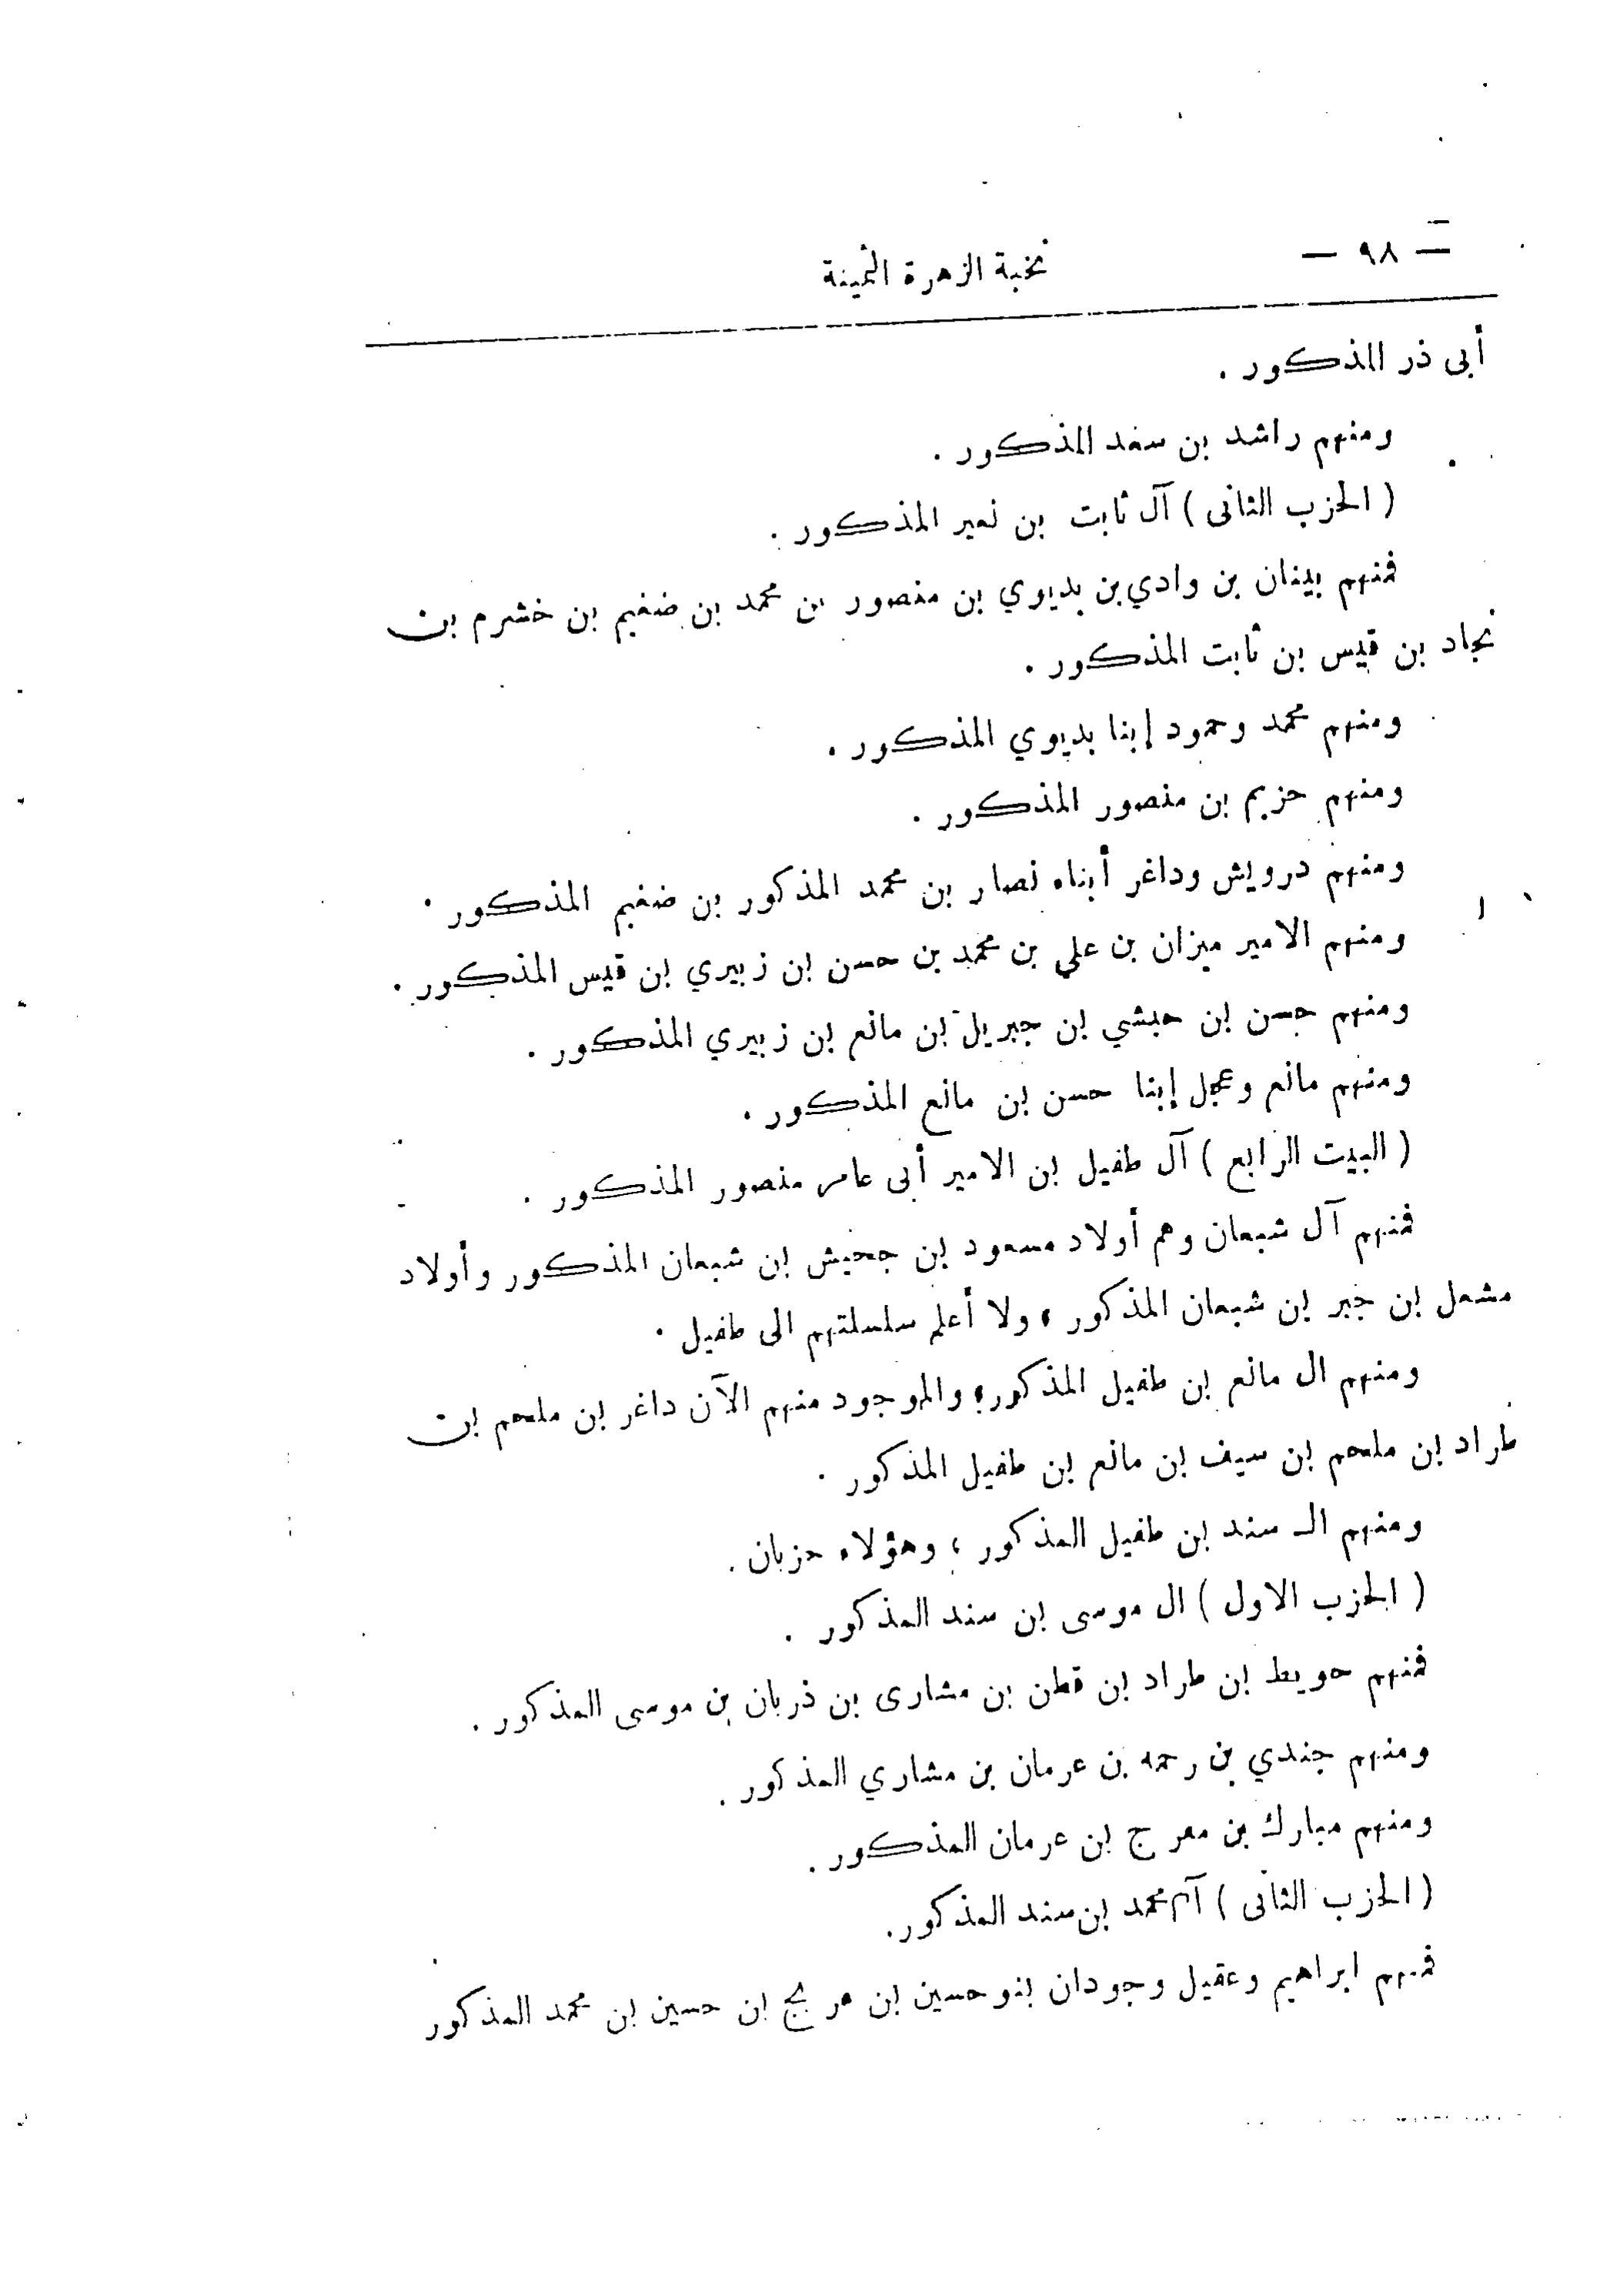 — ٩٨ — نخبة الزهرة الثمينة
أبى ذر المذكور .
ومنهم راشد بن سعد المذكور .
( الحزب الثانى ) آل ثابت بن نعير المذكور .
فمنهم بينان بن وادي بن بديوي بن منصور بن محمد بن ضغيم بن خشرم بن
نجاد بن قيس بن ثابت المذكور .
ومنهم محمد وحمود إبنا بديوي المذكور .
ومنهم حزيم بن منصور المذكور .
ومنهم درويش وداغر أبناء نصار بن محمد المذكور بن ضغيم المذكور .
ومنهم الامير ميزان بن علي بن محمد بن حسن بن زبيري بن قيس المذكور .
ومنهم حسن بن حبشي بن جبريل بن مانع بن زبيري المذكور .
ومنهم مانع وعجل إبنا حسن بن مانع المذكور .
( البيت الرابع ) آل طفيل بن الامير أبى عامر منصور المذكور .
فمنهم آل شبعان وهم أولاد مسعود بن جخيش بن شبعان المذكور وأولاد
مشعل بن جبر بن شبعان المذكور ، ولا أعلم سلسلتهم الى طفيل .
ومنهم ال مانع بن طفيل المذكور، والموجود منهم الآن داغر بن ملحم بن
طراد بن ملحم بن سيف بن مانع بن طفيل المذكور .
ومنهم الـ سند بن طفيل المذكور ، وهؤلاء حزبان .
( الحزب الاول ) ال موسى بن سند المذكور .
فمنهم حويط بن طراد بن قطن بن مشارى بن ذربان بن موسى المذكور .
ومنهم جندي بن رحمه بن عرمان بن مشاري المذكور .
ومنهم مبارك بن معرج بن عرمان المذكور .
( الحزب الثانى ) آم محمد بن سند المذكور.
فمنهم ابراهيم وعقيل وجودان بنو حسين بن مريج بن حسين بن محمد المذكور